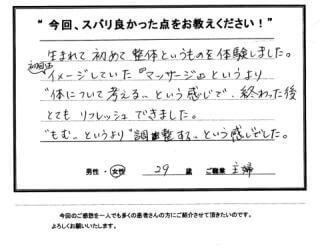 “今回、スバリ良かった点をお教えください！”
生まれて初めて整体というものを体験しました。
初回は
イメージしていた『マッサージ』というより
“体について考える”という感じで、終わった後
とてもリフレッシュできました。
“もむ”というより“調整する”という感じでした。
男性・女性 29 歳 ご職業 主婦
今回のご感想を一人でも多くの患者さんの方にご紹介させて頂きたいのです。
よろしくお願いいたします。